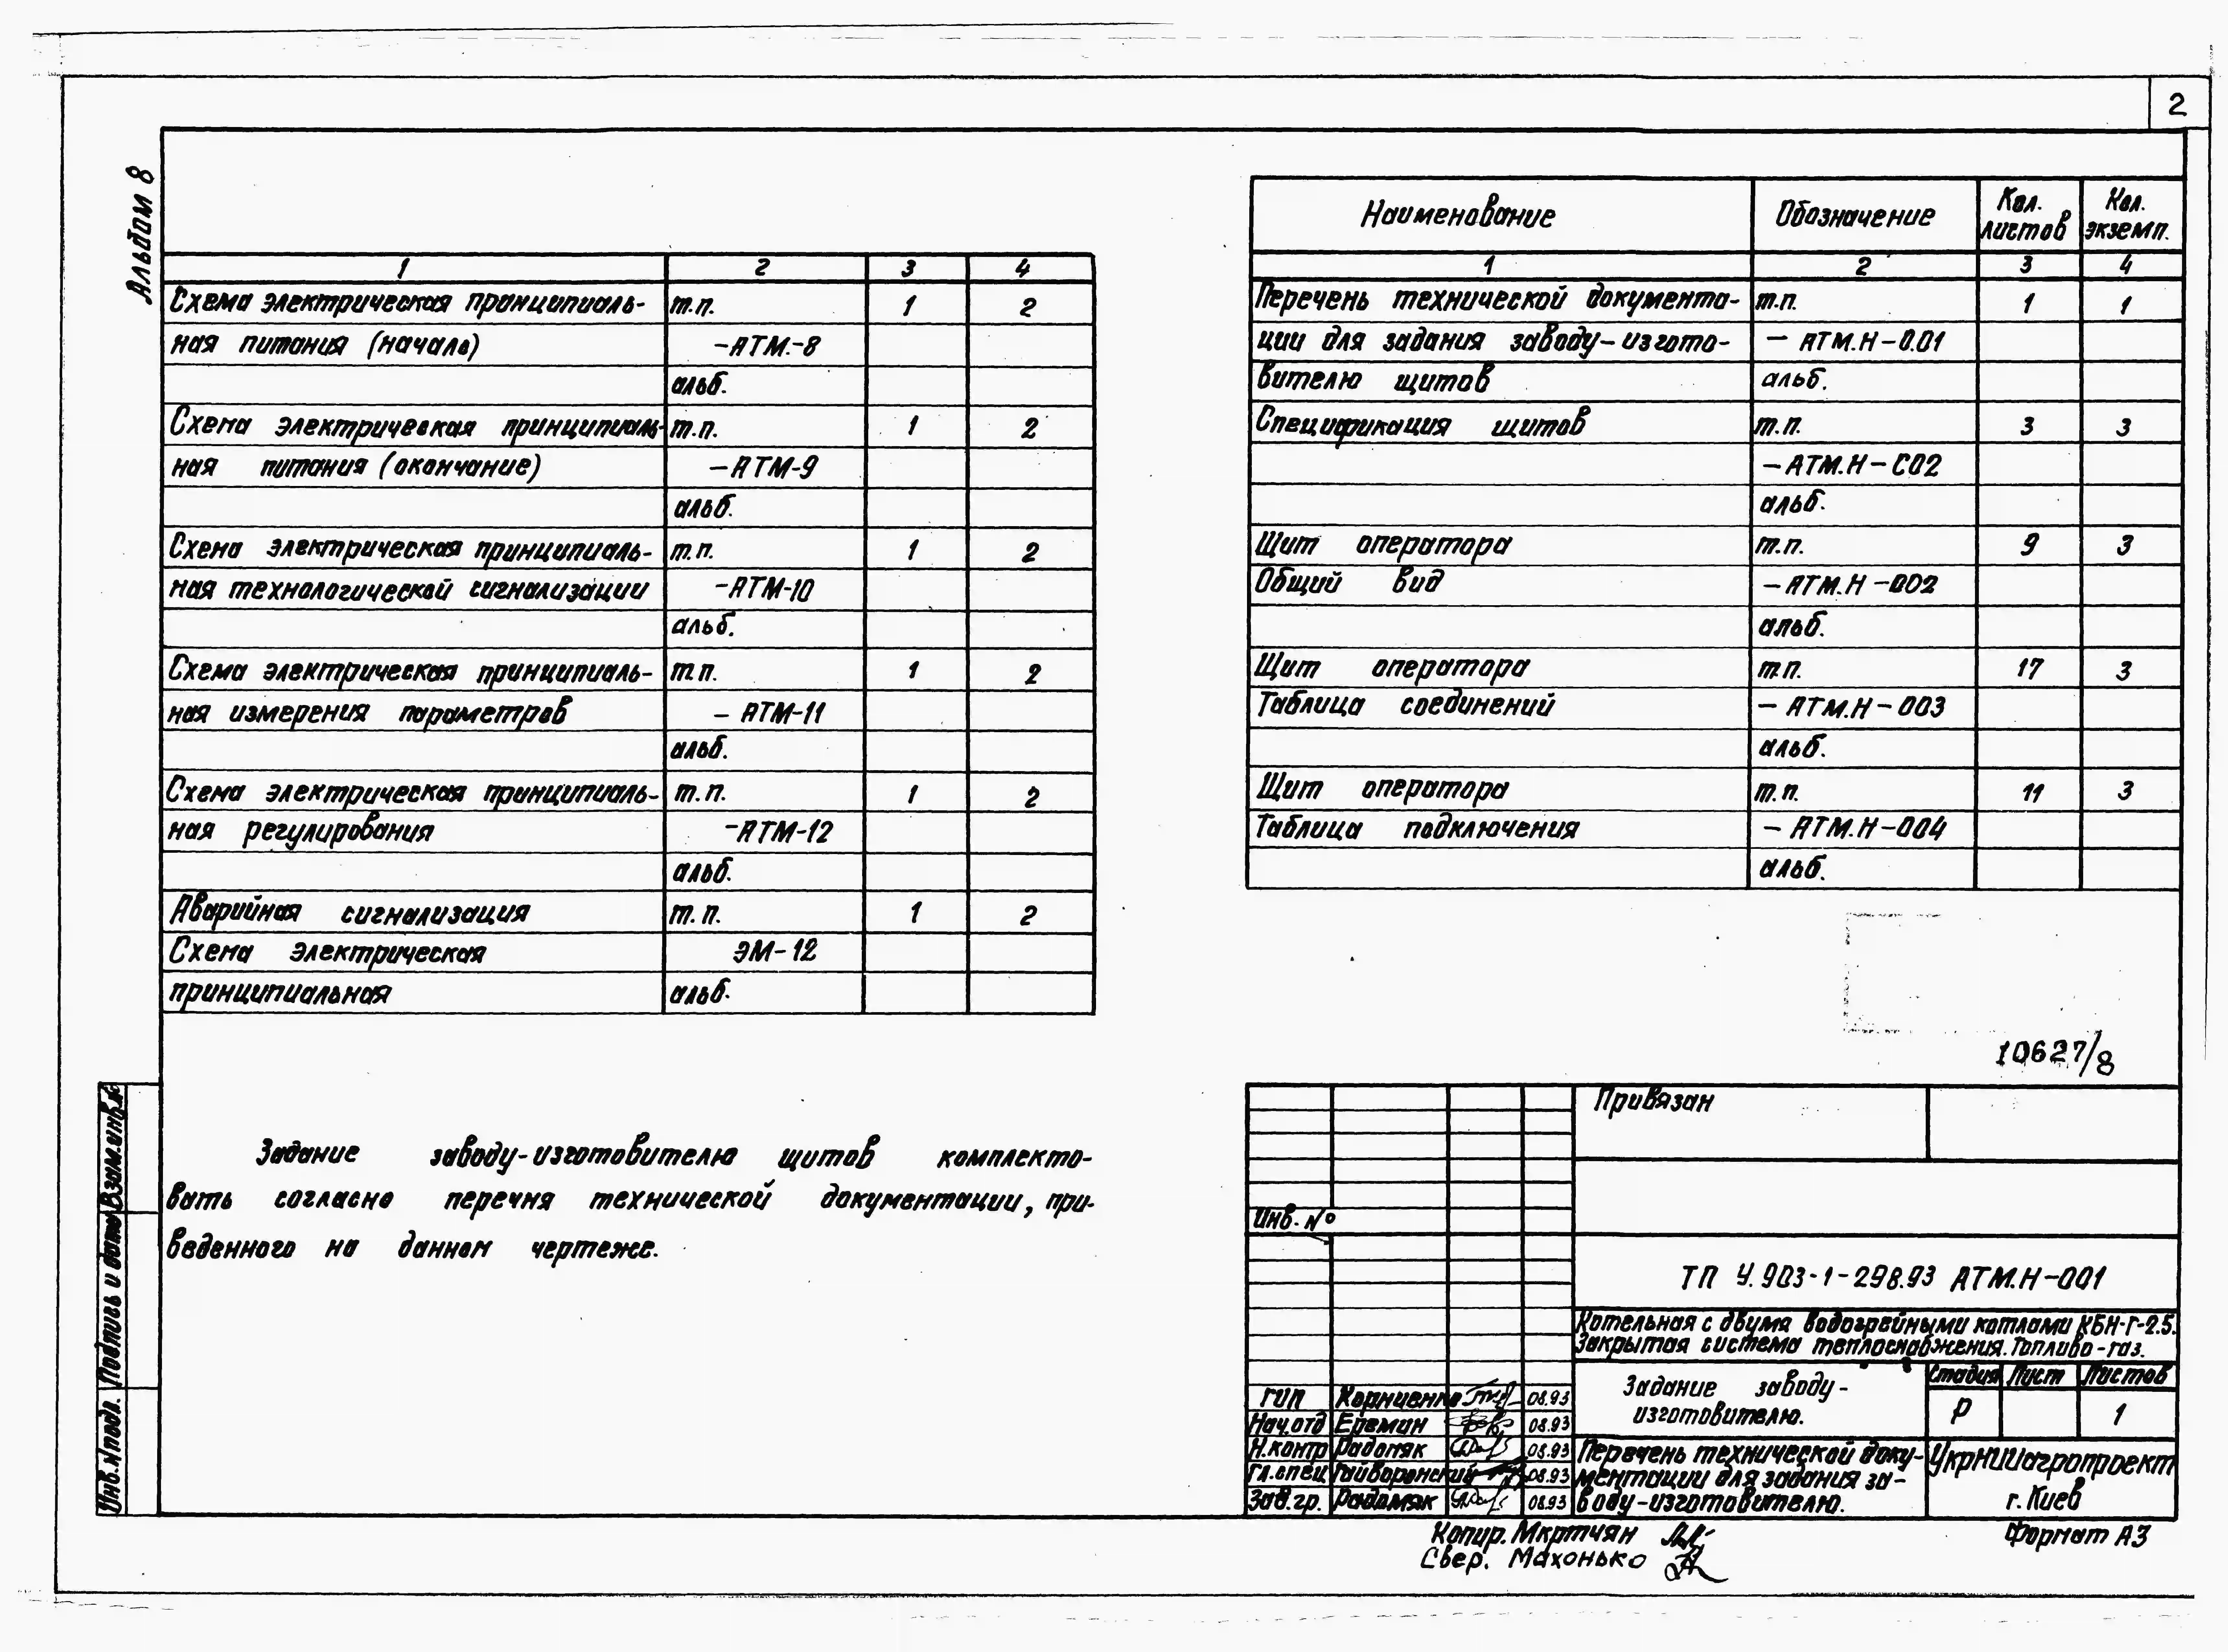 2
Альбом 8
1 2 3 4
Схема электрическая принципиаль- т.п. 1 2
ная питания (начало) -АТМ-8
альб.
Схема электрическая принципиаль- т.п. 1 2
ная питания (окончание) -АТМ-9
альб.
Схема электрическая принципиаль- т.п. 1 2
ная технологической сигнализации -АТМ-10
альб.
Схема электрическая принципиаль- т.п. 1 2
ная измерения параметров - АТМ-11
альб.
Схема электрическая принципиаль- т.п. 1 2
ная регулирования -АТМ-12
альб.
Аварийная сигнализация т.п. 1 2
Схема электрическая ЭМ-12
принципиальная альб.
Задание заводу-изготовителю щитов комплекто-
вать согласно перечня технической документации, при-
веденного на данном чертеже.
Наименование Обозначение Кол. листов Кол. экземп.
1 2 3 4
Перечень технической документа- т.п. 1 1
ции для задания заводу-изгото- - АТМ.Н-0.01
вителю щитов альб.
Спецификация щитов т.п. 3 3
-АТМ.Н-СО2
альб.
Щит оператора т.п. 9 3
Общий вид -АТМ.Н-002
альб.
Щит оператора т.п. 17 3
Таблица соединений - АТМ.Н-003
альб.
Щит оператора т.п. 11 3
Таблица подключения - АТМ.Н-004
альб.
10627/8
Привязан
Инв. №
ТП У.903-1-298.93 АТМ.Н-001
Котельная с двумя водогрейными котлами КБН-Г-2.5.
Закрытая система теплоснабжения. Топливо-газ.
Задание заводу-
изготовителю.
Стадия Лист Листов
Р 1
ГИП Корниенко 08.93
Нач.отд Еремин 08.93
Н.контр Радомяк 08.93
Гл.спец Гайворонский 08.93
Зав.гр. Радомяк 08.93
Перечень технической доку-
ментации для задания за-
воду-изготовителю.
УкрНИИагропроект
г. Киев
Копир. Мкртчян
Свер. Махонько
Формат А3
Взам.инв.№
Подпись и дата
Инв.№подл.